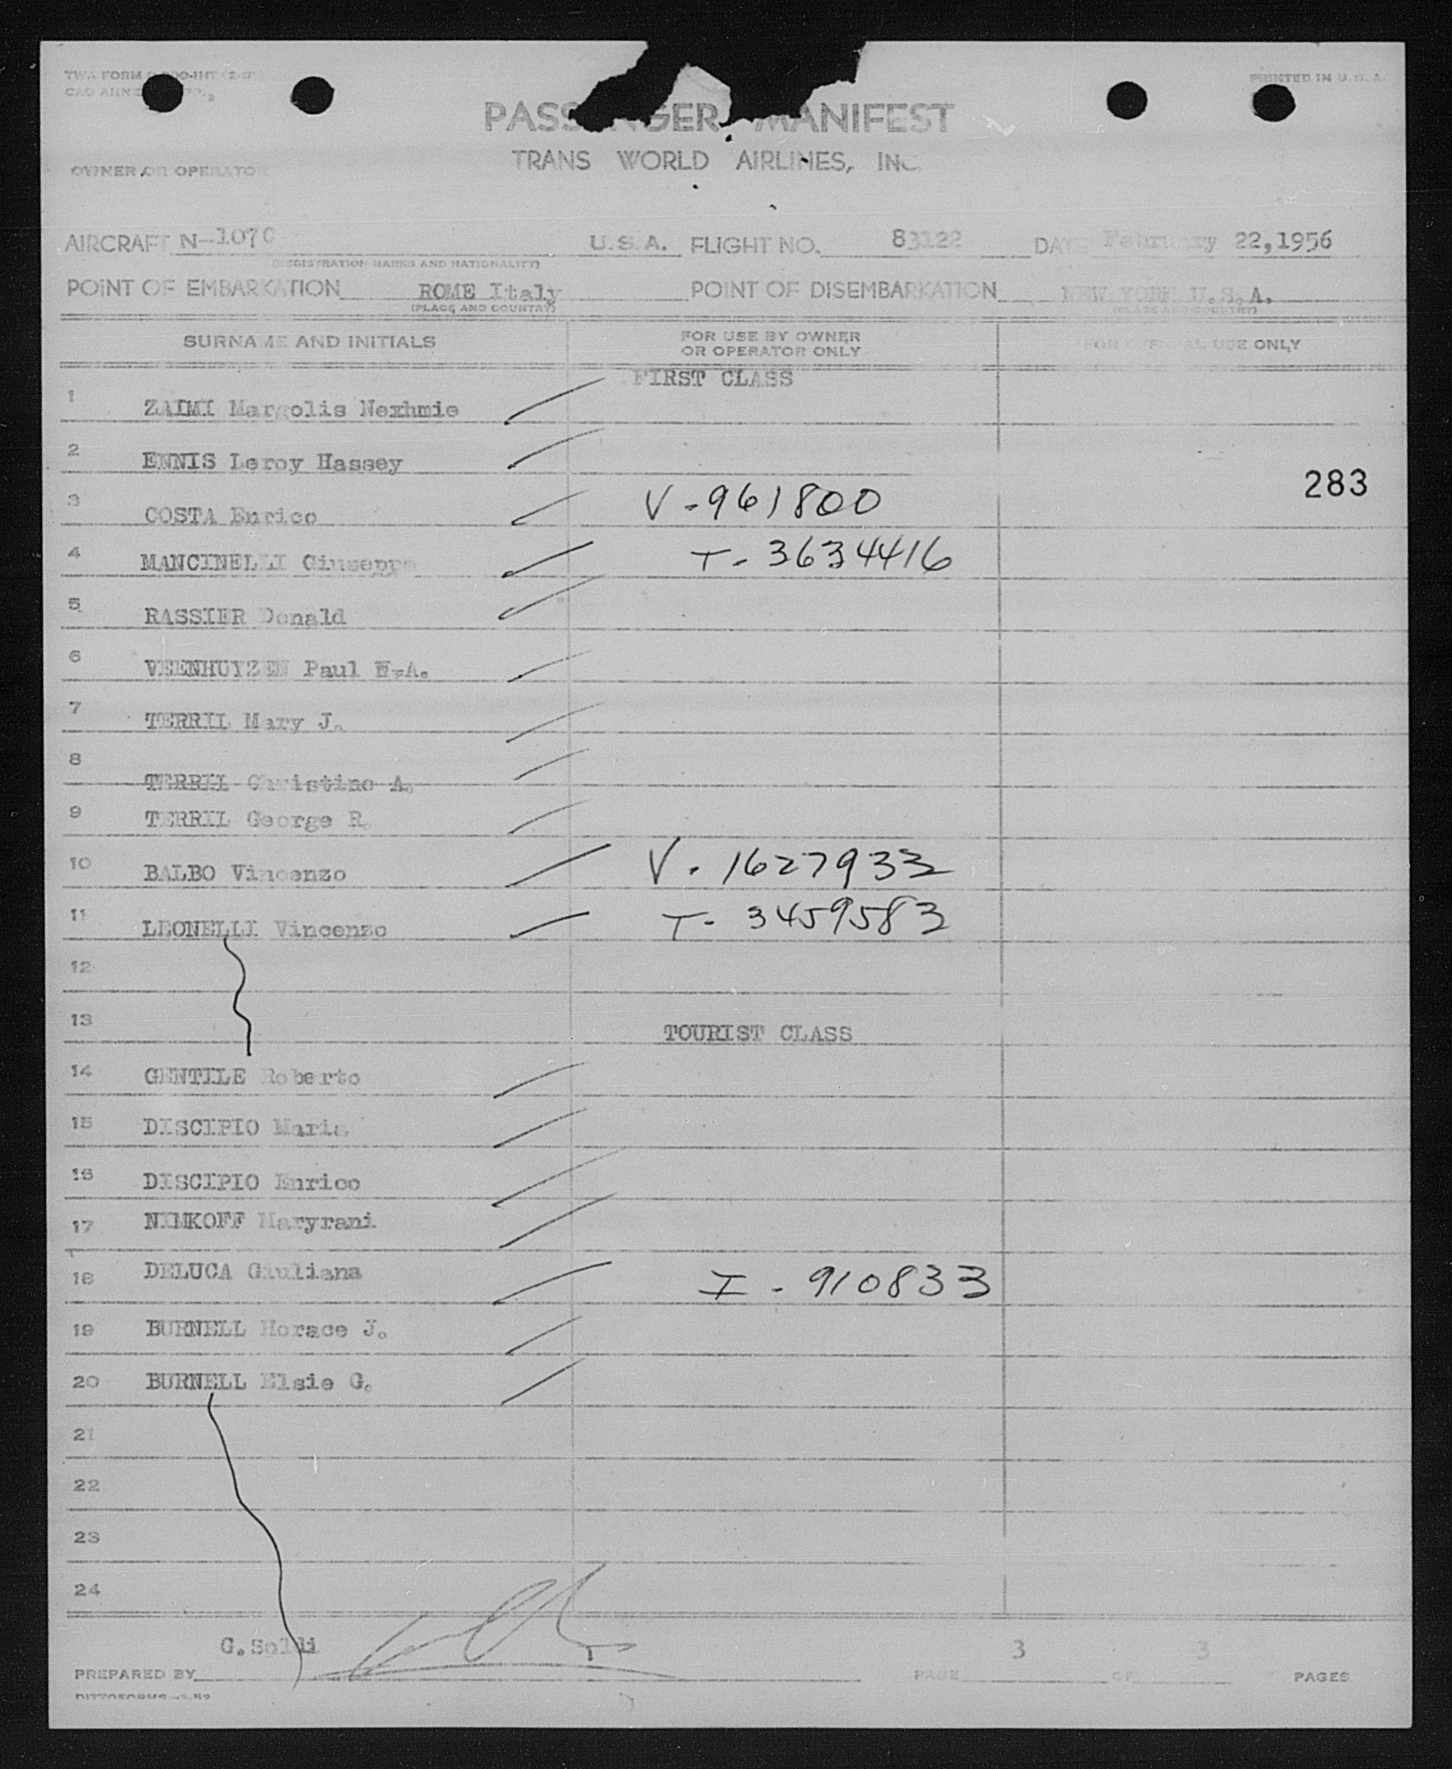 TWA FORM
PRINTED IN U.S.A.
PASSENGER MANIFEST
TRANS WORLD AIRLINES, INC.
OWNER OR OPERATOR
AIRCRAFT N-107C U.S.A. FLIGHT NO. 83122 DATE February 22,1956
(REGISTRATION MARKS AND NATIONALITY)
POINT OF EMBARKATION ROME Italy POINT OF DISEMBARKATION NEW YORK U.S.A.
(PLACE AND COUNTRY) (PLACE AND COUNTRY)
SURNAME AND INITIALS FOR USE BY OWNER OR OPERATOR ONLY FOR OFFICIAL USE ONLY
FIRST CLASS
1 ZAIMI Margolis Nexhmie
2 ENNIS Leroy Hassey
283
3 COSTA Enrico V-961800
4 MANCINELLI Giuseppe T-3634416
5 RASSIER Donald
6 VEENHUYZEN Paul A.
7 TERRIL Mary J.
8 TERRIL Christine A.
9 TERRIL George R.
10 BALBO Vincenzo V-1627933
11 LEONELLI Vincenzo T-3459583
12
13 TOURIST CLASS
14 GENTILE Roberto
15 DISCIPIO Maria
16 DISCIPIO Enrico
17 NIMKOFF Maryrani
18 DELUCA Giuliana I-910833
19 BURNELL Horace J.
20 BURNELL Elsie G.
21
22
23
24
G.Soldi
PREPARED BY PAGE 3 OF 3 PAGES
DITTOFORMS